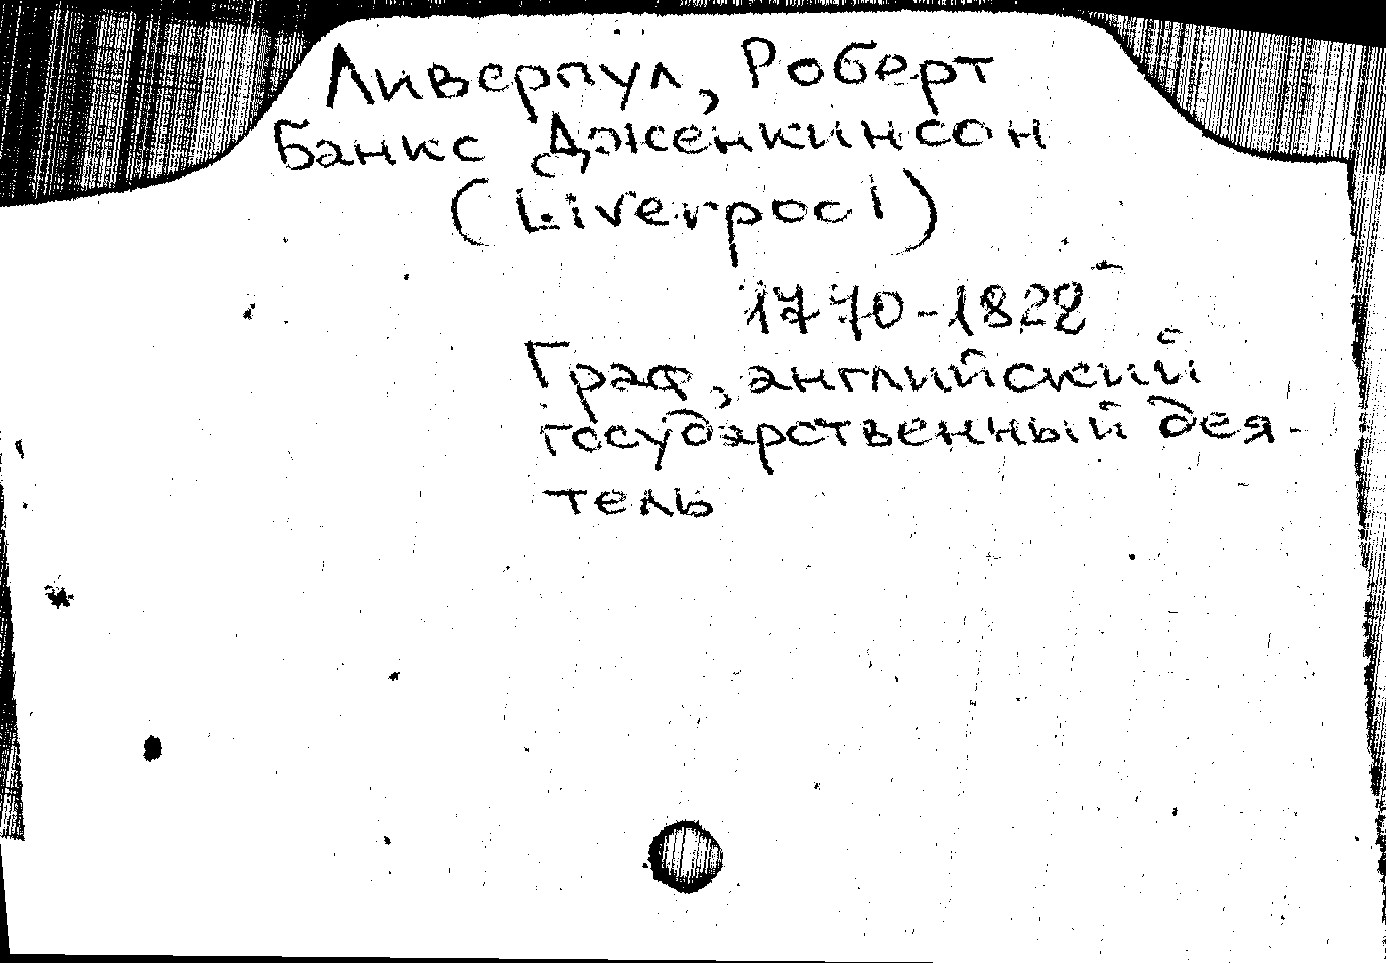 Ливерпул, Роберт
Банкс Дженкинсон
(Liverpool)
1770-1828
Граф, английский
государственный дея-
тель